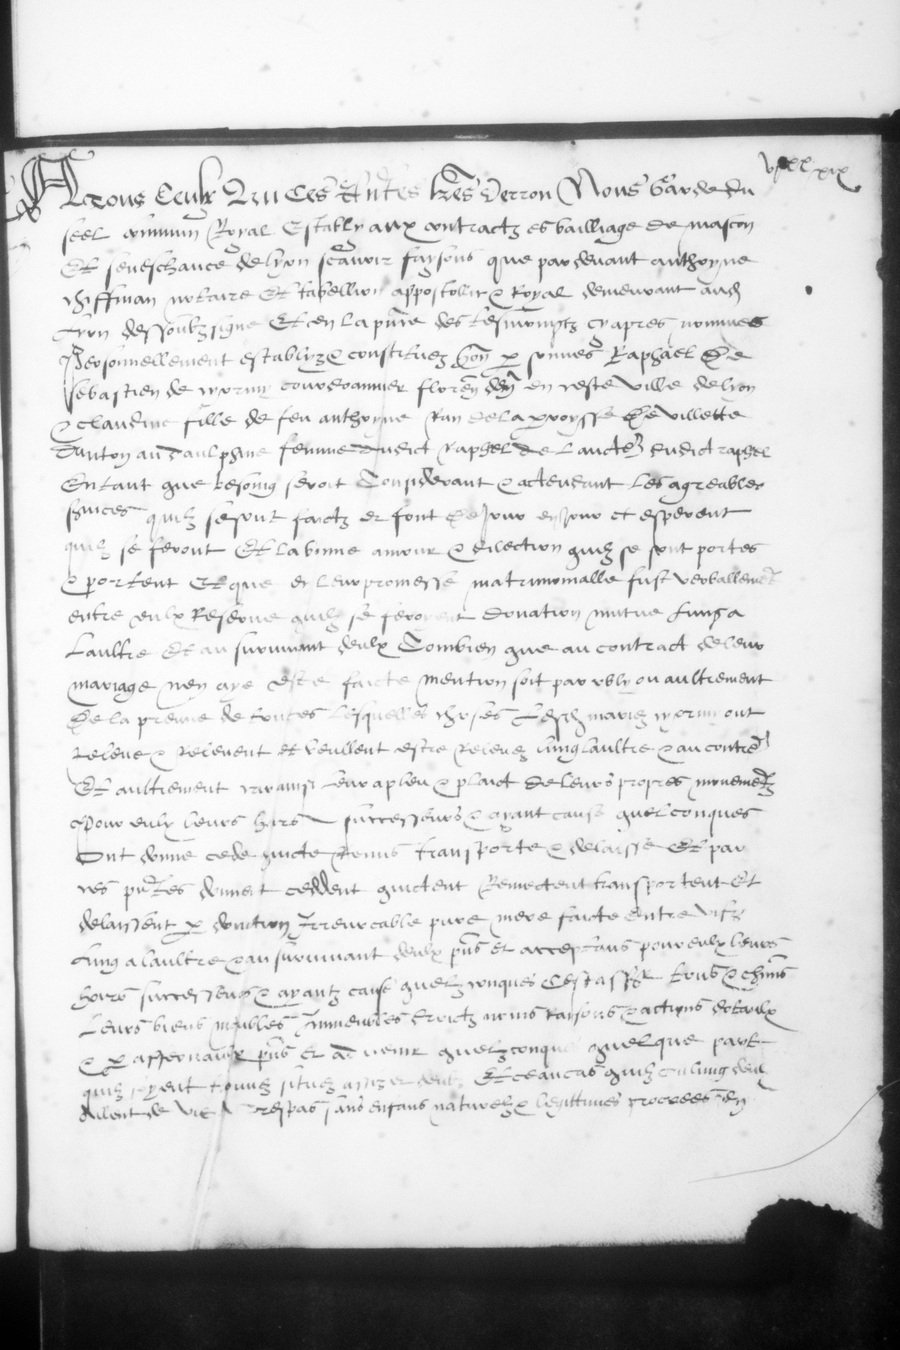 A tous ceulx qui ces presentes lres verron Nous garde du
seel commun Royal estably aux contractz es bailliage de mascon
Et seneschaucee de lyon scavoir faisons que pardevant anthoyne
notaire Et tabellion appostolicq & Royal demeurant aud
lyon dessoubz signe Et en la pnce des tesmoingtz cy apres nommes
Personnellement establyz & constituez hon per sonnes Raphael de
Sebastien de courdoannier floren dem en ceste ville de lyon
& claudine fille de feu anthoyne de la parroysse de villette
danton au daulphine femme dudict raphael de laucte dudict raphael
Entant que besoing seroit Considerant & actendant les agreables
services quilz se sont faictz et font de Jour en Jour et esperent
quilz se feront Et la bonne amour & dilection quilz se sont portes
& portent Et que en leur promesse matrimonialle fust verballement
entre eulx Reserve quilz se feroyent donation mutue lung a
laultre Et au survivant deulx Combien que au contract de leur
mariage nen aye este faicte mention soit par obly ou aultrement
De la preuve de toutes lesquelles choses lesd mariez ont
Releve & Relevent et veullent estre Relevez lung laultre & au contre
Et aultrement leur a pleu & plaict de leurs propres mouvementz
Pour eulx leurs hoirs successeurs & ayant cause quelconques
Ont donne cede quicte Remis transporte & delaisse Et par
ces pntes donnent ceddent quictent Remectent transportent Et
delaissent per donation Irrevocable pure mere faicte entre vifz
lung a laultre & au survivant deulx pns et acceptans pour eulx leurs
hoirs successeurs & ayantz cause quelzconques Cest assr tous & chuns
Leurs biens meubles Immeubles droictz noms Raisons & actions dotaulx
& peraffernaulx pns et advenir quelzconques quelque part
quilz soyent trouvez situez assiz et Et ce au cas quilz ou lung deulx
aillent de vie a trespas sans enfans naturelz & legittimes procrees en